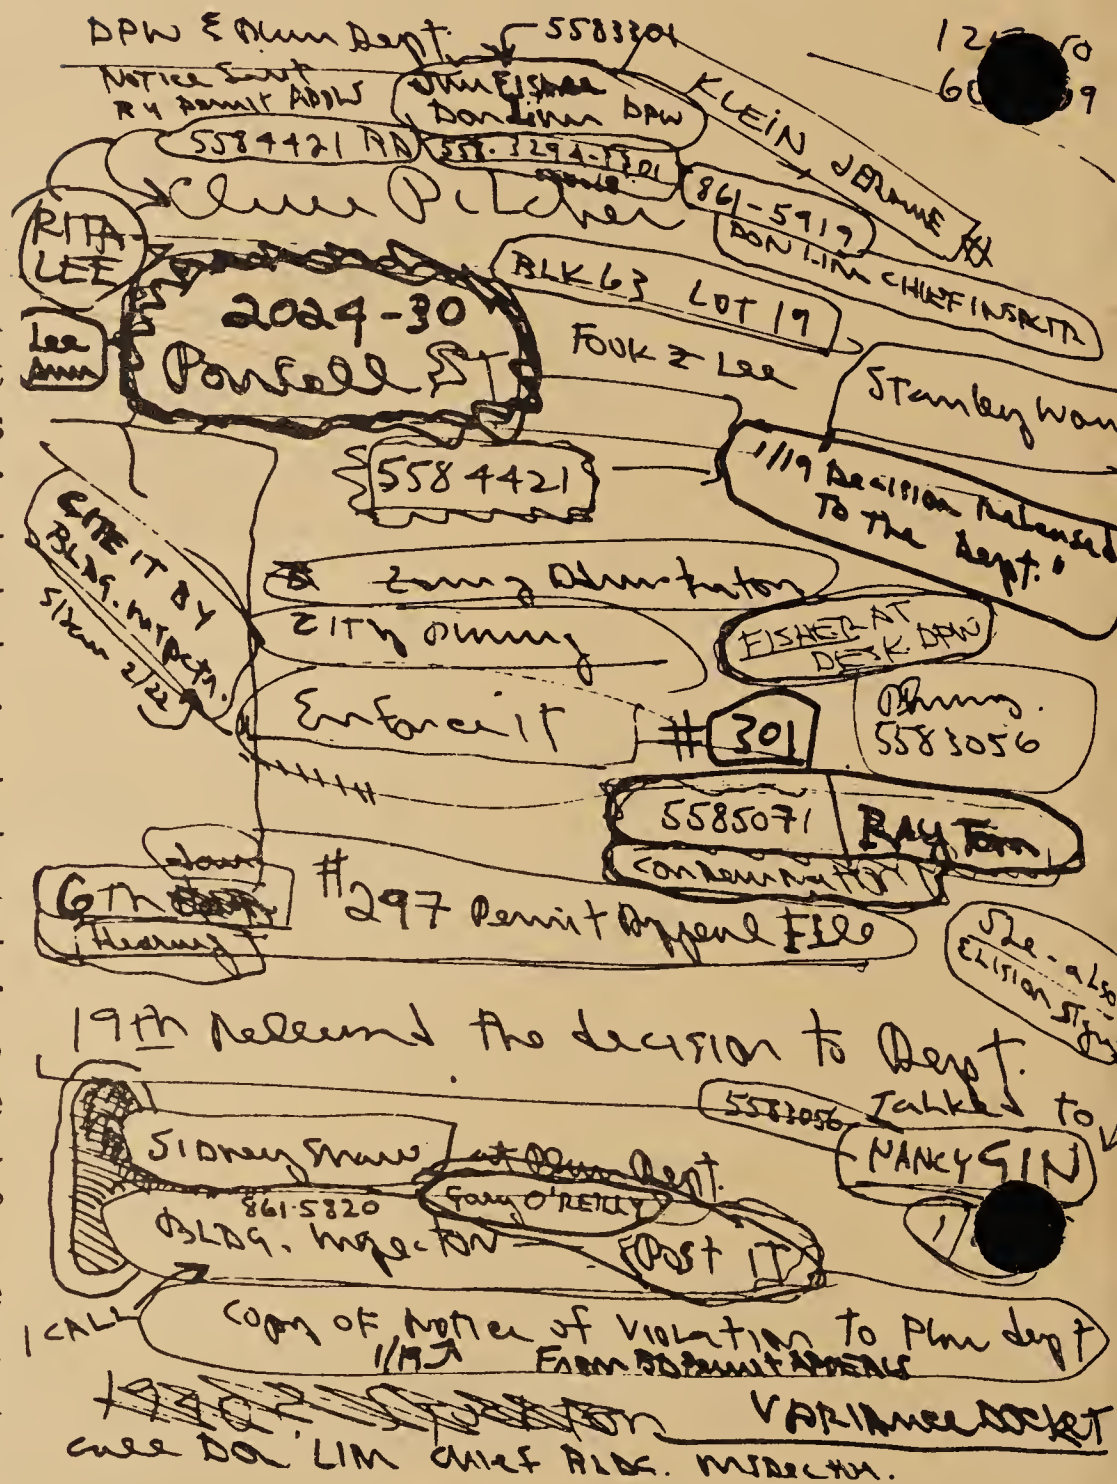 DPW & Plan Dept. 5583301
Notice Sent
By Permit APPLS
Jim Fisher
DPW
KLEIN JEROME
5584421
558-3294-3301
RITA
LEE
861-5919
DON LIM CHIEF INSPCTR
BLK 63 LOT 19
2024-30
ST
Lee
Ann
FOOK Z Lee
Stanley Won
5584421
"1/19 Decision Released
To The Dept."
CITE IT BY
BLDG. INSPCTR.
2/22
Zoning Administrator
CITY Planning
FISHER AT
DESK. DPW
Enforce it
# 301
5583056
5585071 RAY Tom
Condemnation
6th
Hearing
#297 Permit Appeal File
She - also
19th Released the decision to Dept.
5583056 Talked to
NANCY GIN
Sidney Shaw at Plan Dept.
861-5820 Gary O'REILLY
BLDG. Inspector Post IT
1
CALL
Copy OF Notice of Violation to Plan dept
1/19 From BD Permit APPEALS
VARIANCE DOCKET
Call Don LIM Chief BLDG. Inspector.